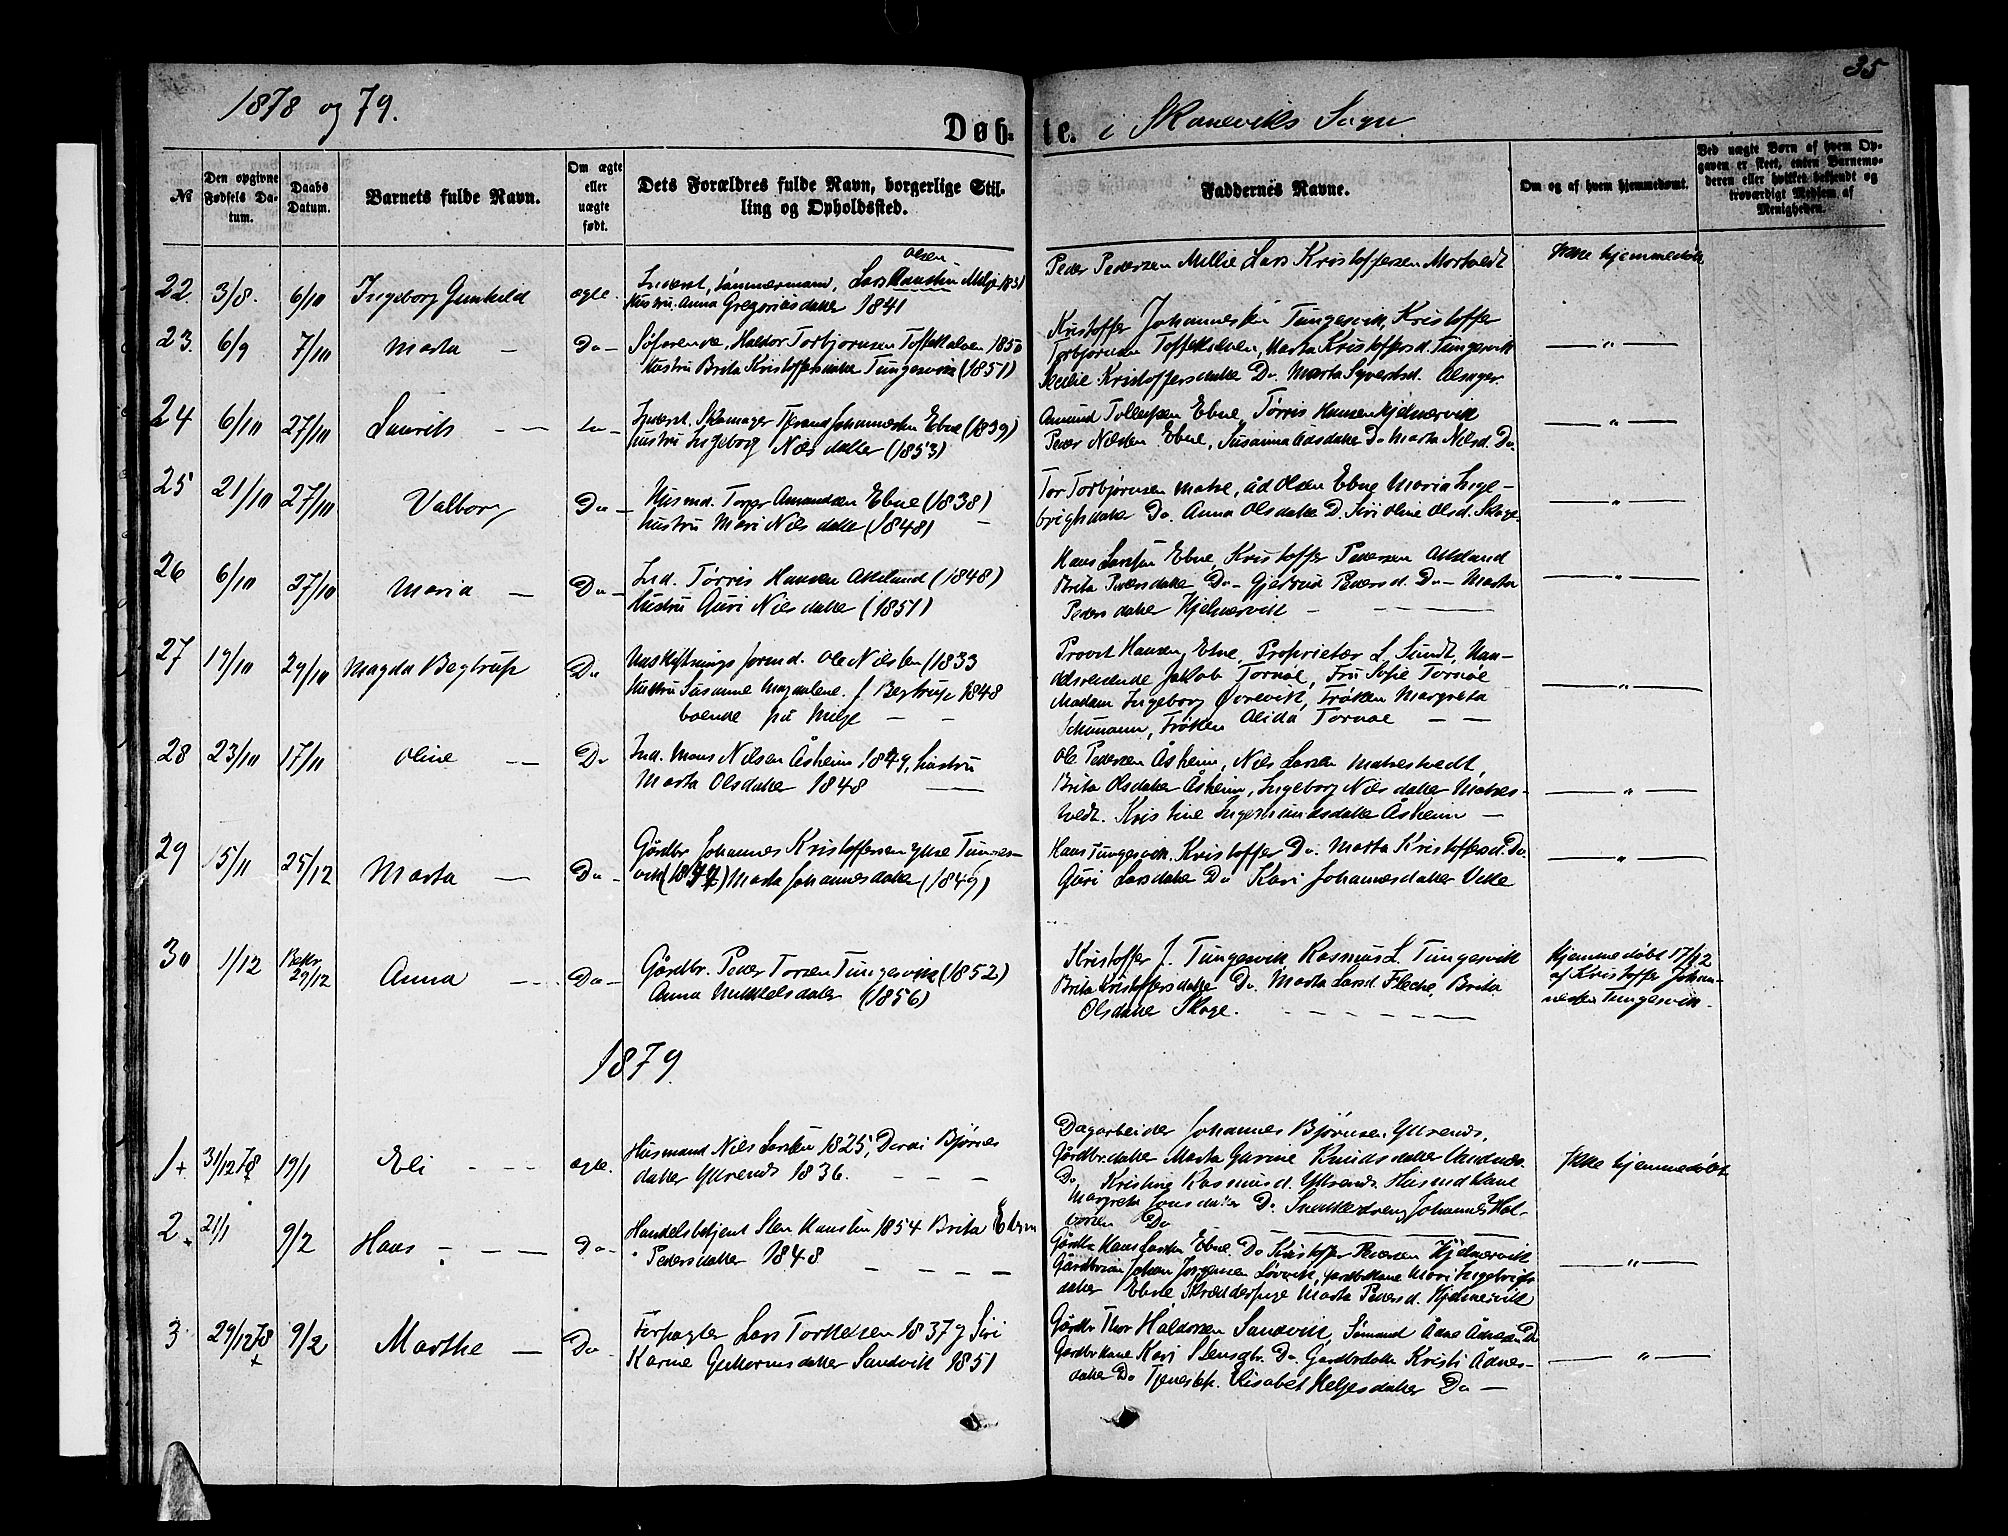 35
1878 og 79.
Døb- te. i Skaneviks Sogn
№
Den opgivne Fødsels Da-tum.
Daabs Datum.
Barnets fulde Navn.
Om ægte eller uægte født.
Dets Forældres fulde Navn, borgerlige Stil-
ling og Opholdssted.
Faddernes Navne.
Om og af hvem hjemmedøbt.
Ved uægte Børn af hvem Op-
gaven er skeet, enten Barnemo-
deren eller hvilket bekjendt og
troværdigt Medlem af
Menigheden.
22 3/8. 6/10 Ingeborg Gunhild ægte.
Olsen
Inderst, Tømmermand, Lars Milje 1831
Hustru Anna Gregoriusdatter 1841
Peder Pedersen Millie Lars Kristoffersen Mortvedt
Ikke hjemmedøbt
23. 6/9 7/10 Marta — Do —
Søfarende, Haldor Torbjørnsen Toftekalven 1850
Hustru Brita Kristoffersdatter Tungesvik (1851)
Kristoffer Johannessen Tungesvik, Kristoffer
Torbjørnsen Toftekalven, Marta Kristoffersd. Tungesvik
Kristoffersdatter Do. Marta Syvertsd. Alsager.
— " —
24 6/10 27/10 Laurits — — Do —
Inderst, Skomager Johannessen Ebne (1839)
Hustru Ingeborg Nilsdatter (1853)
Amund Tollefsen Ebne, Tørris Hansen Kjelnervik
Peder Nilsen Ebne, Susanna Do Marta Nilsd. Do.
— " —
25 21/10 27/10 Valborg Do —
Husmd. Amundsen Ebne (1838)
Hustru Mari Nilsdatter (1848) —
Tor Torbjørnsen Matre, Åd Olsen Ebne Maria Inge-
brigtsdatter Do. Anna Olsdatter D. Siri Oline Olsd. Skoge.
— " —
26 6/10 27/10 Maria — Do —
Ind. Tørris Hansen Akselund (1848)
Hustru Guri Nilsdatter (1851)
Hans Larsen Ebne, Kristoffer Pedersen
Brita Pedersdatter Do — Gjertrud Pedersd. Do — Marta
Pedersdatter Kjelnervik — — — —
— " —
27 19/10 29/10 Magda Begtrup Do
Ole Nilsen (1833
Hustru Susanne Magdalene f. Begtrup 1848
boende på Milje — —
Provst Hansen, Etne, Proprietær L. Sundt, Han-
delsreisende Jakob Tornøe, Fru Sofie Tornøe
Madam Ingeborg Øvrevik, Frøken Margreta
Schumann, Frøken Alida Tornøe — —
— " —
28 23/10 17/11 Oline — Do
Ind. Mons Nilsen Åsheim 1849, hustru
Marta Olsdatter 1848 —
Ole Pedersen Åsheim, Nils Larsen Matrestvedt,
Brita Olsdatter Åsheim, Ingeborg Nilsdatter Matres-
tvedt. Kristine Åsheim —
— " —
29 15/11 25/12 Marta — Do —
Gårdbr. Johannes Kristoffersen Ytre Tunges-
vik Marta Johannesdatter (1849)
Hans Tungesvik. Kristoffer Do. Marta Kristoffersd. Do.
Guri Larsdatter Do Kari Johannesdatter
— " —
30 1/12 Bekr. 29/12 Anna — Do —
Gårdbr. Peder Torsen Tungesvik (1852)
Anna Mikkelsdatter (1856)
Kristoffer J. Tungesvik Rasmus L. Tungesvik
Brita Kristoffersdatter Do. Marta Larsd Fleche, Brita
Olsdatter Skoge. — — — —
Hjemmedøbt 17/12
af Kristoffer Johan-
nessen Tungesvik.
1879
1+ 31/12 78 19/1 Eli — — — ægte.
Husmand Nils Larsen 1825, Bjørns
datter 1836. — — —
Dagarbeider Johannes Bjørnsen
Gårdbr.datter Marta Gurine Knudsdatter
Do Kristine Rasmusd. Husmdskone
Margreta Jonsdatter D. Snekkerdreng Johannes Hal-
vorsen Do
Ikke hjemmedøbt
2+ 21/1 9/2 Hans — — — Do —
Handelsbetjent Sten Hansen 1854 Brita
Pedersdatter 1848 — — — —
Gårdbr. Hans Larsen Ebne Do Kristoffer Pedersen Kjelnervik
Gårdbr. Johan Jørgensen Løvvik, Gårdbr.kone Mari Ingebrigts
datter Ebne Skrædderpige Marta Pedersd. Kjelnervik
— " —
3 29/12 78 + 9/2 Marthe — Do —
Forpagter Lars Torkelsen 1837 og Siri
Karine Guttormsdatter Sandvik 1851
Gårdbr. Thor Haldorsen Sandvik, Sømand Ådne Do
Gårdbr.kone Kari Do. Gårdbr.datter Kristi Ådnes-
datter Do Tjenestep. Elisabet Helgesdatter Do —
— " —